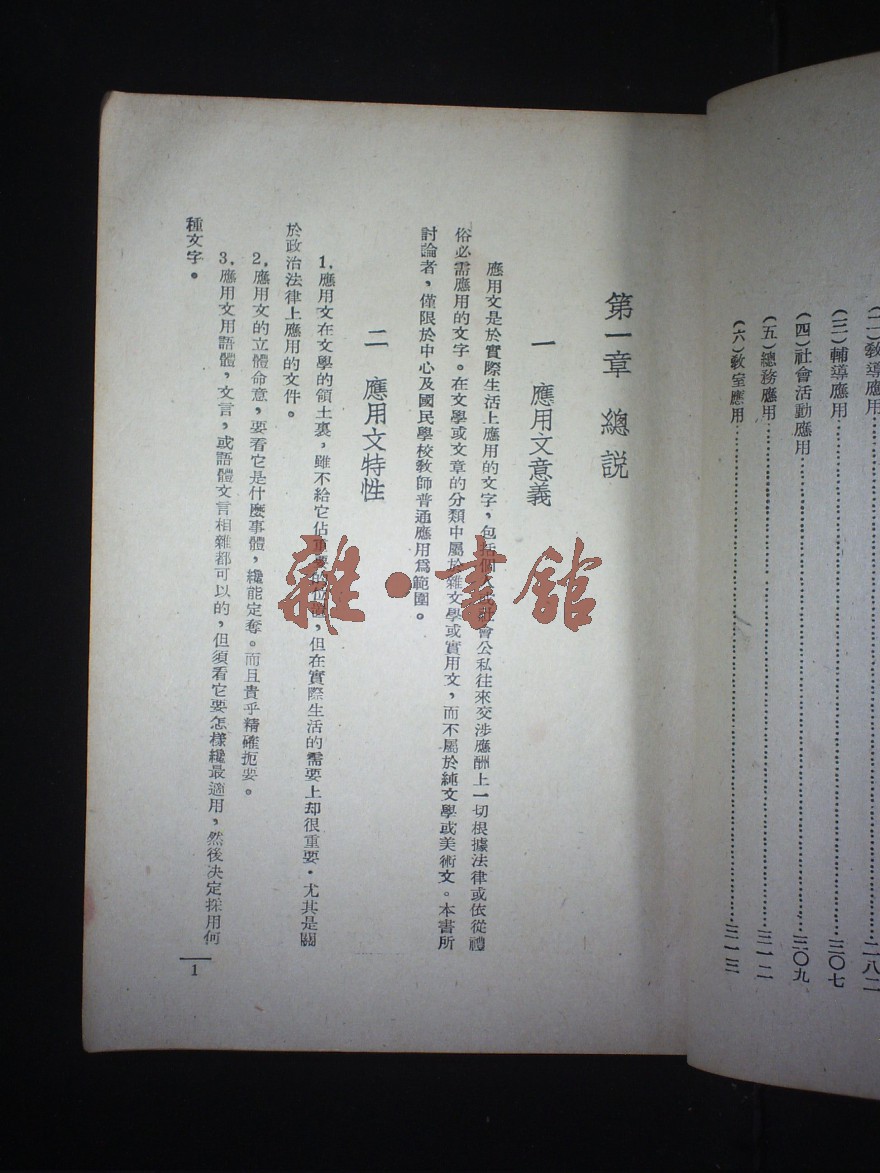 (二)教導應用……二八二
(三)輔導應用……三〇七
(四)社會活動應用……三〇九
(五)總務應用……三一二
(六)教室應用……三一三
第一章 總説
一 應用文意義
應用文是於實際生活上應用的文字，包括個人或社會公私往來交涉應酬上一切根據法律或依從禮
俗必需應用的文字。在文學或文章的分類中屬於雜文學或實用文，而不屬於純文學或美術文。本書所
討論者，僅限於中心及國民學校教師普通應用爲範圍。
二 應用文特性
1.應用文在文學的領土裏，雖不給它佔重要的位置，但在實際生活的需要上却很重要·尤其是關
於政治法律上應用的文件。
2.應用文的立體命意，要看它是什麽事體，纔能定奪。而且貴乎精確扼要。
3.應用文用語體，文言，或語體文言相雜都可以的，但須看它要怎樣纔最適用，然後决定採用何
種文字。
1
雜·書館